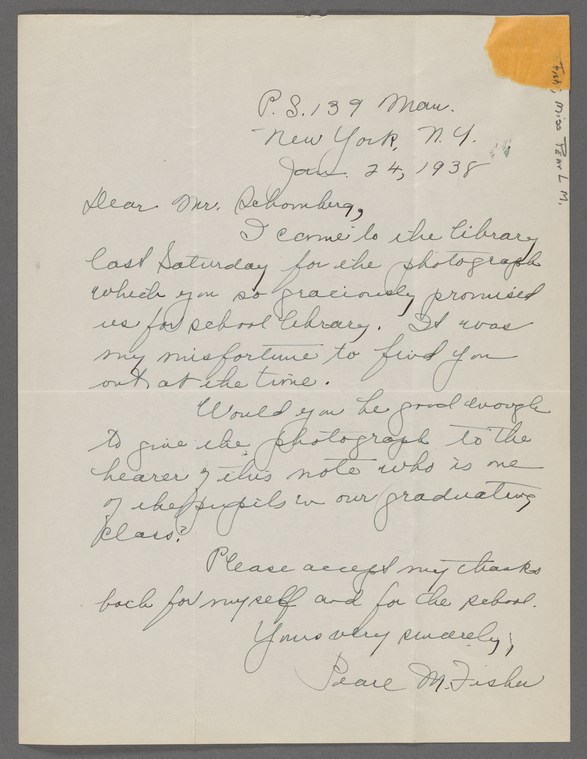 P.S. 139 Man.
New York, N.Y.
Jan. 24, 1938
Dear Mr. Schomberg,
I came to the library
last Saturday for the photograph
which you so graciously promised
us for school library. It was
my misfortune to find you
out at the time.
Would you be good enough
to give the photograph to the
bearer of this note who is one
of the pupils in our graduating
class?
Please accept my thanks
both for myself and for the school.
Yours very sincerely,
Pearl M. Fisher
Miss Pearl M.